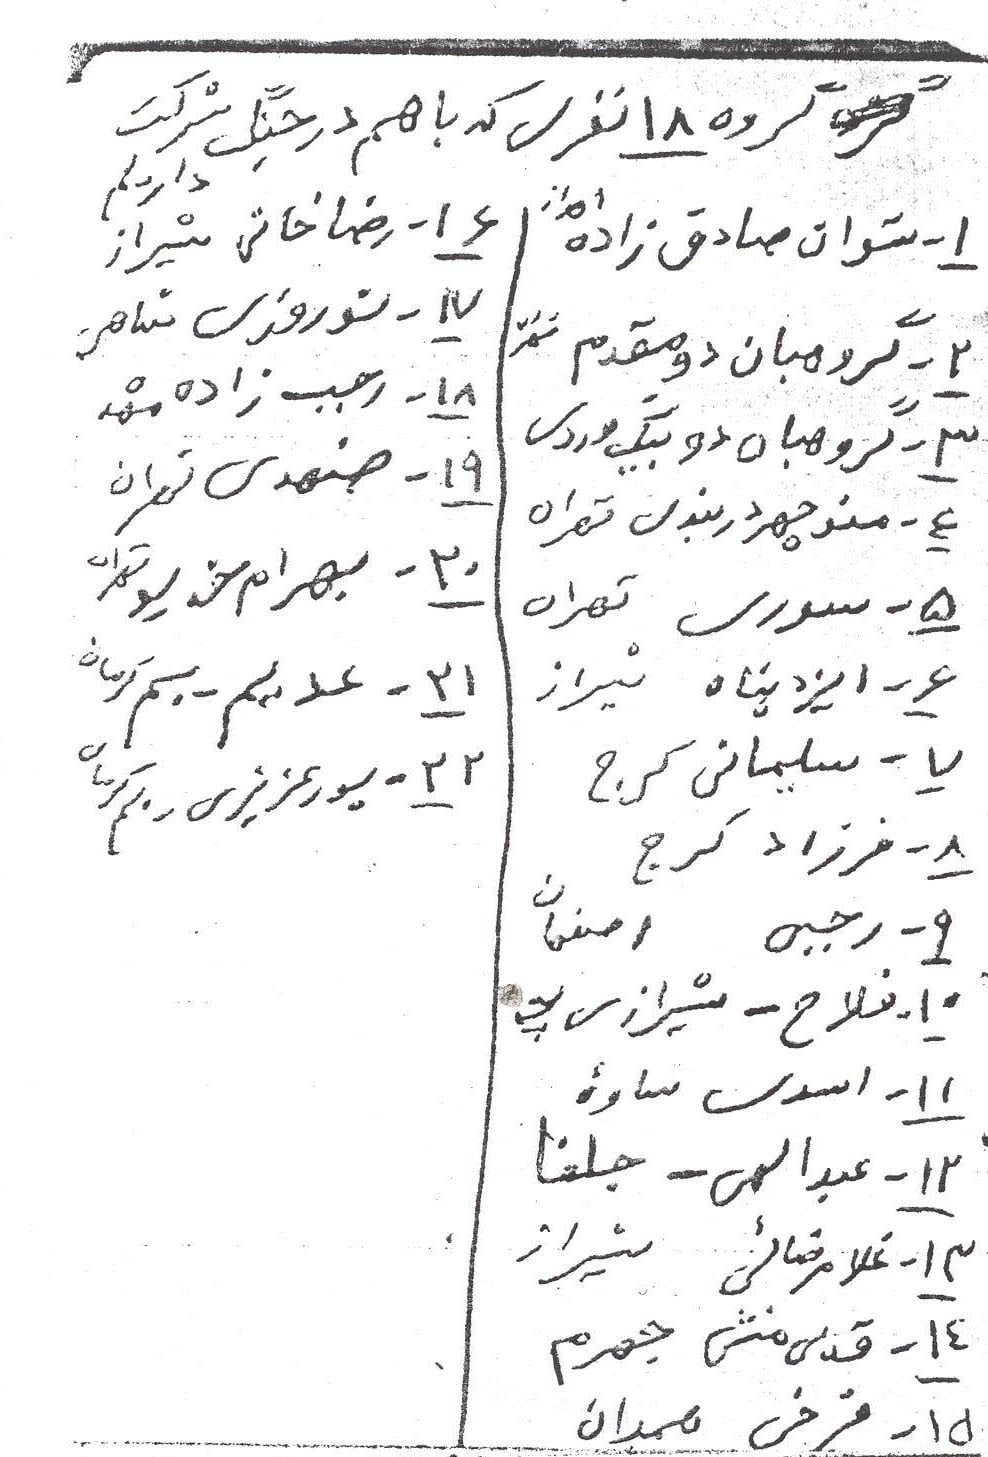 گروه ۱۸ نفری که با هم در جنگ شرکت
داریم
۱- ستوان صادق زاده اهواز
۲- گروهبان دو مقدم
۳- گروهبان دو بیگ وردی
۴- منوچهر دربندی تهران
۵- سوری تهران
۶- ایزدپناه شیراز
۷- سلیمانی کرج
۸- فرزاد کرج
۹- رجبی اصفهان
۱۰- فلاح - شیرازی
۱۱- اسدی ساوۀ
۱۲- عبدالهی - جلفا
۱۳- غلامرضائی شیراز
۱۴- قدسی منش جهرم
۱۵- فرخی همدان
۱۶- رضاخانی شیراز
۱۷- نوروزی
۱۸- رجب زاده مشهد
۱۹- تهران
۲۰- بهرام تهران
۲۱- عدیم - بم کرمان
۲۲- پورعزیزی بم کرمان